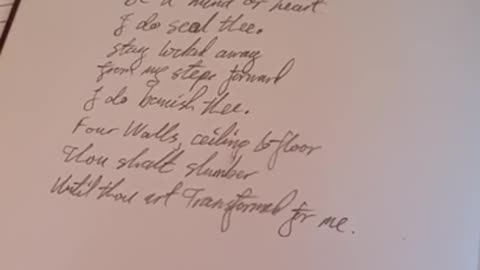 be a mind or heart
I do seal thee.
stay locked away
from my steps forward
I do banish thee.
Four Walls, ceiling & floor
Thou shalt slumber
Until thou art Transformed for me.